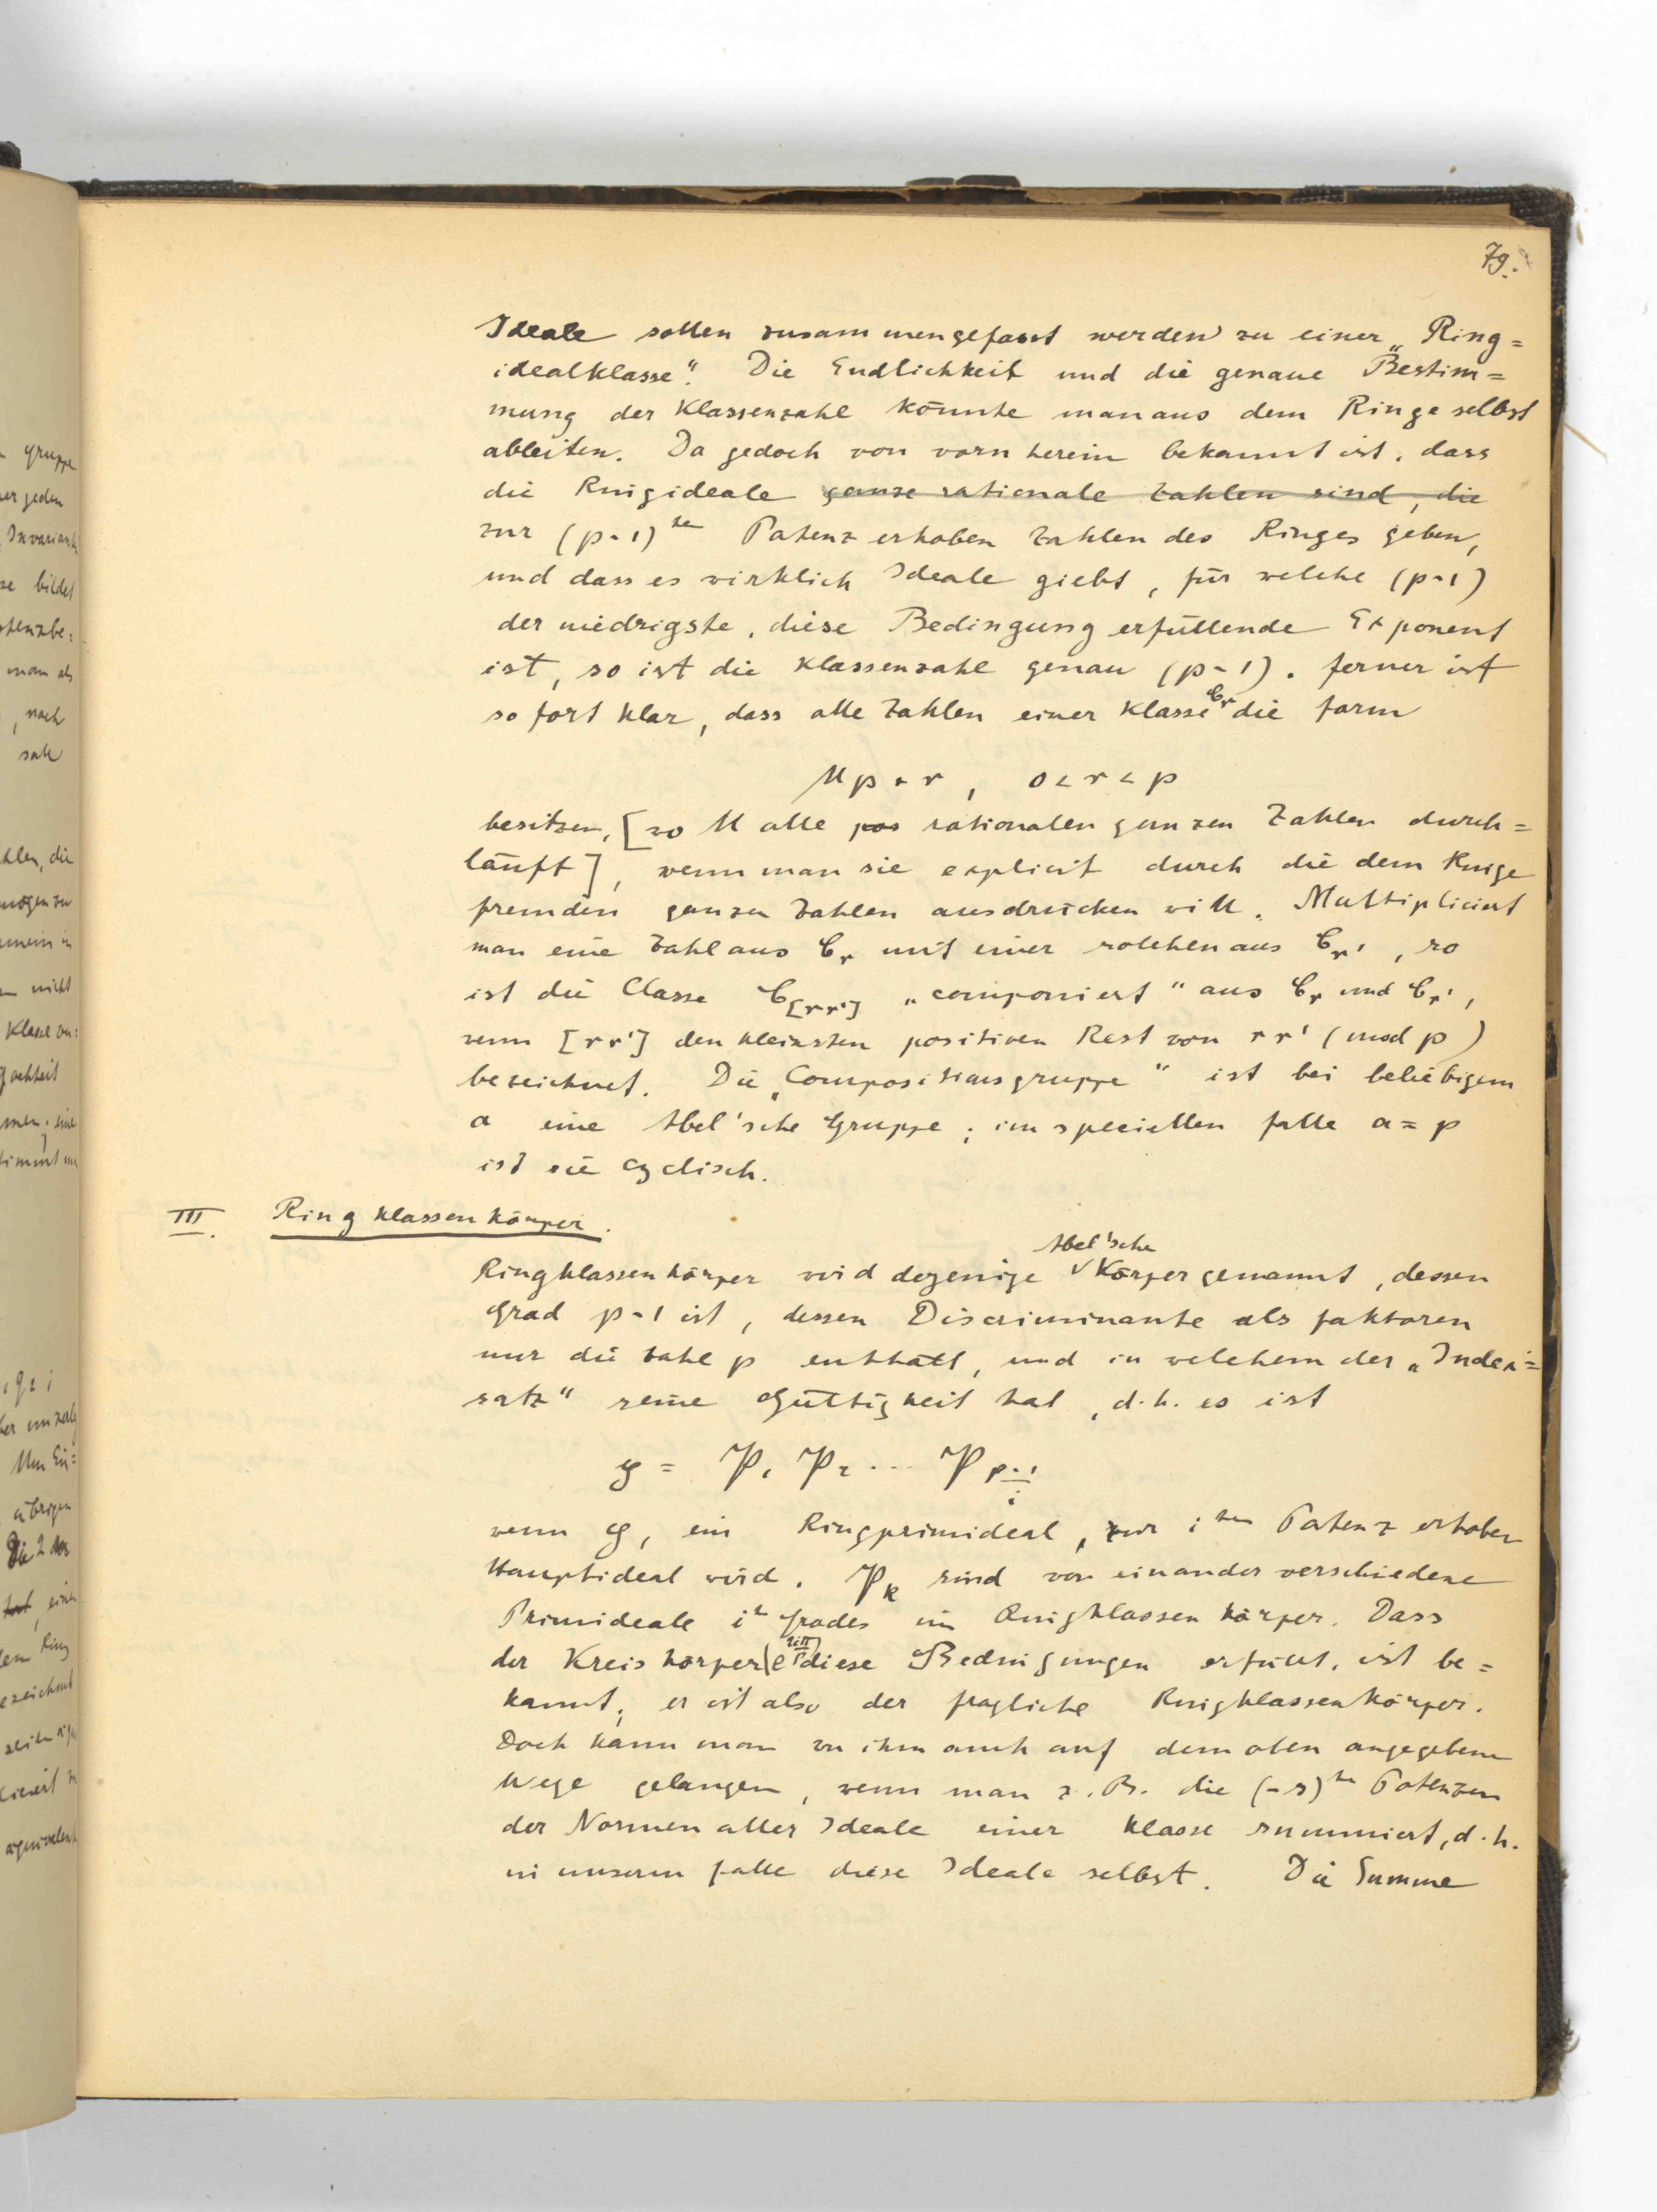 79.
Ideale sollen zusammengefasst werden zu einer „Ring=
idealklasse". Die Endlichkeit und die genaue Bestim=
mung der Klassenzahl könnte man aus dem Ringe selbst
ableiten. Da jedoch von vorn herein bekannt ist, dass
die Ringideale ganze rationale Zahlen sind, die
zur (p-1)ten Potenz erhoben Zahlen des Ringes geben,
und dass es wirklich Ideale giebt, für welche (p-1)
der niedrigste, diese Bedingung erfüllende Exponent
ist, so ist die Klassenzahl genau (p-1). Ferner ist
sofort klar, dass alle Zahlen einer Klasse C_r die Form
Mp+r, 0<r<p
besitzen, [wo M alle pos rationalen ganzen Zahlen durch=
läuft], wenn man sie explicit durch die dem Ringe
fremden ganzen Zahlen ausdrücken will. Multipliciert
man eine Zahl aus C_r mit einer solchen aus C_r', so
ist die Classe C_[rr'] „componiert" aus C_r und C_r',
wenn [rr'] den kleinsten positiven Rest von rr' (mod p)
bezeichnet. Die „Compositionsgruppe" ist bei beliebigem
a eine Abel'sche Gruppe; im speciellen Falle a=p
ist sie cyclisch.
III. Ringklassenkörper.
Ringklassenkörper wird dejenige Abel'sche Körper genannt, dessen
Grad p-1 ist, dessen Discriminante als Faktoren
nur die Zahl p enthält, und in welchem der „Index=
satz" seine Gültigkeit hat, d.h. es ist
y = P_1 P_2 ... P_{(p-1)/i}
wenn y, ein Ringprimideal, zur iten Potenz erhoben
Hauptideal wird. P_k sind von einander verschiedene
Primideale in Grades im Ringklassenkörper. Dass
der Kreiskörper (e^{2iπ/p}) diese Bedingungen erfüllt, ist be=
kannt; er ist also der fragliche Ringklassenkörper.
Doch kann man zu ihm auch auf dem oben angegebenen
Wege gelangen, wenn man z.B. die (-s)ten Potenzen
der Normen aller Ideale einer Klasse summiert, d.h.
in unserm Falle diese Ideale selbst. Die Summe